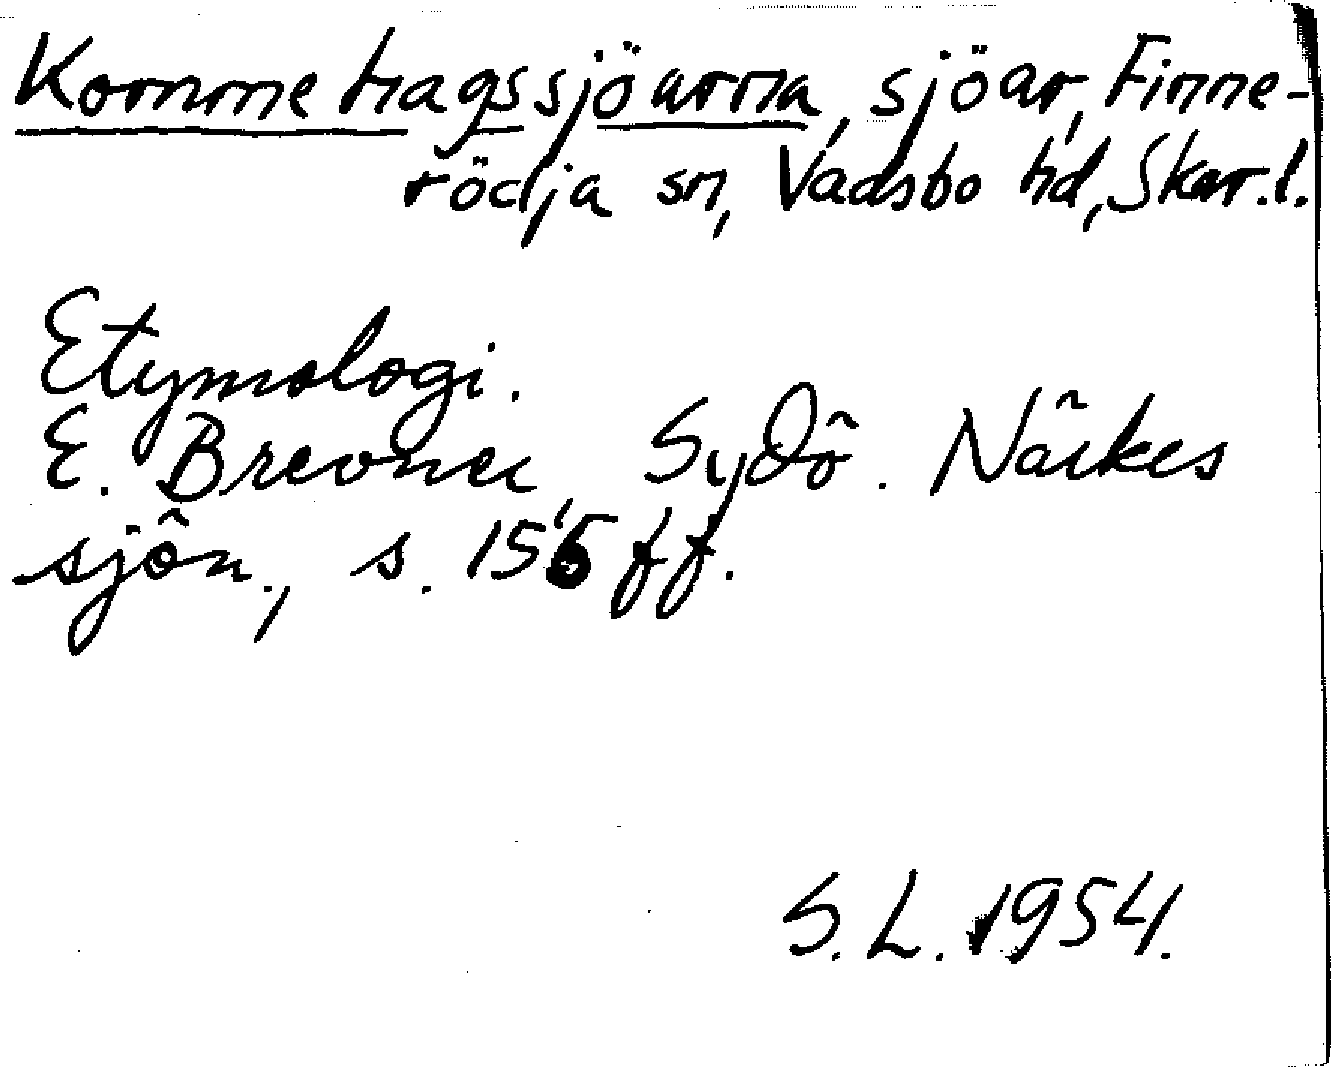 Kommehagssjöarna, sjöar, Finne-
rödja sn, Vadsbo hd, Skar.l.
Etymologi.
E. Brevner, Sydö. Närkes
sjön., s. 156 ff.
S. L. 1954.